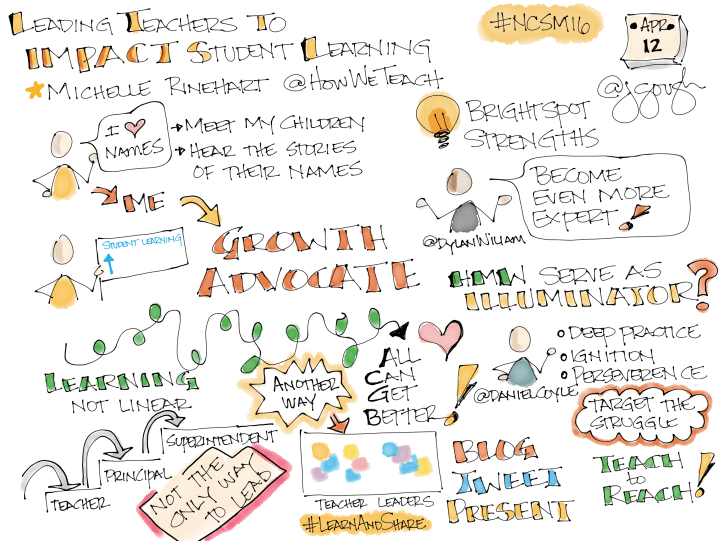 LEADING TEACHERS TO
IMPACT STUDENT LEARNING
MICHELLE RINEHART @HOWWETEACH
#NCSM16
APR
12
@jgough
I
NAMES
MEET MY CHILDREN
HEAR THE STORIES
OF THEIR NAMES
ME
BRIGHTSPOT
STRENGTHS
BECOME
EVEN MORE
EXPERT!
@DYLANWILIAM
STUDENT LEARNING
GROWTH
ADVOCATE
HMW SERVE AS
ILLUMINATOR?
LEARNING
NOT LINEAR
ANOTHER
WAY
ALL
CAN
GET
BETTER!
DEEP PRACTICE
IGNITION
PERSEVERENCE
@DANIELCOYLE
TARGET THE
STRUGGLE
TEACHER
PRINCIPAL
SUPERINTENDENT
NOT THE
ONLY WAY
TO LEAD
TEACHER LEADERS
#LEARNANDSHARE
BLOG
TWEET
PRESENT
TEACH
to
REACH!